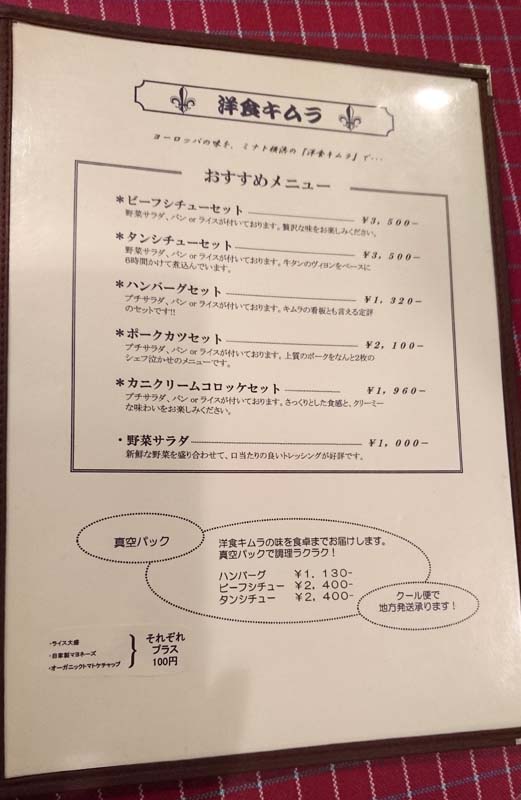 洋食キムラ
ヨーロッパの味を、ミナト横浜の『洋食キムラ』で・・・
おすすめメニュー
＊ビーフシチューセット ￥3,500−
野菜サラダ、パン or ライスが付いております。贅沢な味をお楽しみください。
＊タンシチューセット ￥3,500−
野菜サラダ、パン or ライスが付いております。牛タンのヴィヨンをベースに
6時間かけて煮込んでいます。
＊ハンバーグセット ￥1,320−
プチサラダ、パン or ライスが付いております。キムラの看板とも言える定評
のセットです!!
＊ポークカツセット ￥2,100−
プチサラダ、パン or ライスが付いております。上質のポークをなんと2枚の
シェフ泣かせのメニューです。
＊カニクリームコロッケセット ￥1,960−
プチサラダ、パン or ライスが付いております。さっくりとした食感と、クリーミー
な味わいをお楽しみください。
・野菜サラダ ￥1,000−
新鮮な野菜を盛り合わせて、口当たりの良いトレッシングが好評です。
真空パック
洋食キムラの味を食卓までお届けします。
真空パックで調理ラクラク！
ハンバーグ ￥1,130-
ビーフシチュー ￥2,400-
タンシチュー ￥2,400-
クール便で
地方発送承ります！
・ライス大盛
・自家製マヨネーズ
・オーガニックトマトケチャップ
それぞれ
プラス
100円